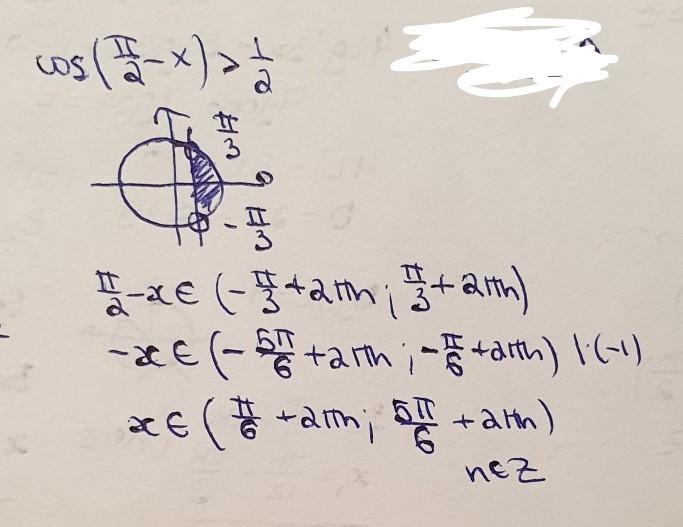 cos(π/2 - x) > 1/2
π/3
0
- π/3
π/2 - x ∈ (- π/3 + 2πn ; π/3 + 2πn)
-x ∈ (- 5π/6 + 2πn ; - π/6 + 2πn) |·(-1)
x ∈ (π/6 + 2πn ; 5π/6 + 2πn)
n∈Z